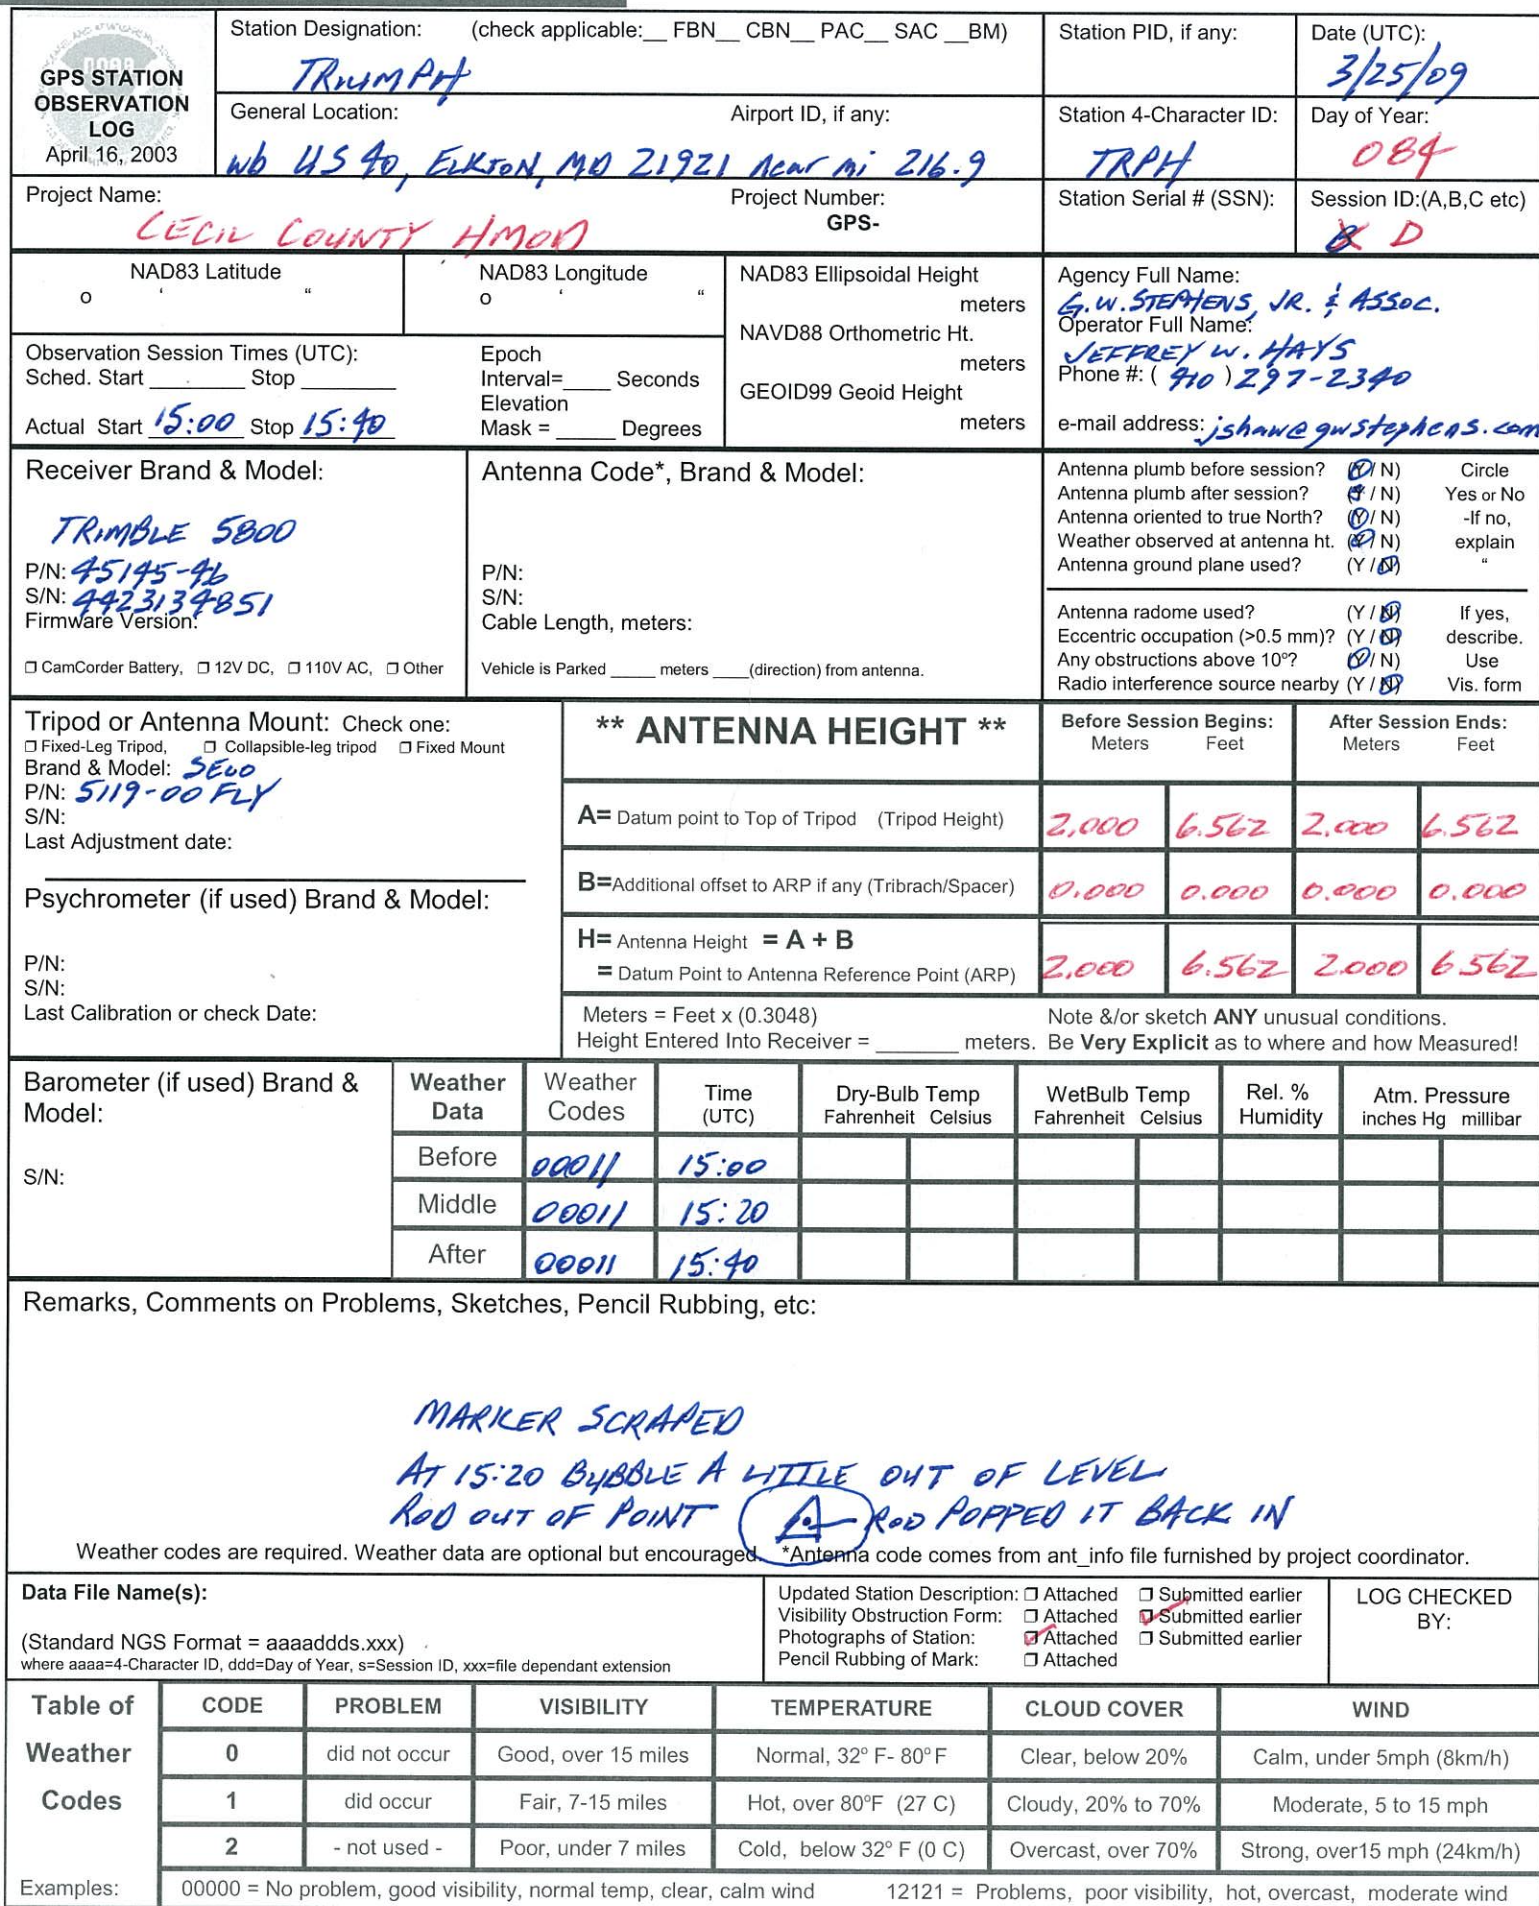 GPS STATION
OBSERVATION
LOG
April 16, 2003
Station Designation: (check applicable:__ FBN__ CBN__ PAC__ SAC __BM)
TRIUMPH
Station PID, if any:
Date (UTC):
3/25/09
General Location: Airport ID, if any:
wb US 40, ELKTON, MD 21921 near mi 216.9
Station 4-Character ID:
TRPH
Day of Year:
084
Project Name:
CECIL COUNTY HMOD
Project Number:
GPS-
Station Serial # (SSN):
Session ID:(A,B,C etc)
D
NAD83 Latitude
o ‘ “
NAD83 Longitude
o ‘ “
NAD83 Ellipsoidal Height
meters
NAVD88 Orthometric Ht.
meters
GEOID99 Geoid Height
meters
Agency Full Name:
G.W. STEPHENS, JR. & ASSOC.
Operator Full Name:
JEFFREY W. HAYS
Phone #: ( 410 ) 297-2340
e-mail address: jshaw@gwstephens.com
Observation Session Times (UTC):
Sched. Start ________ Stop ________
Actual Start 15:00 Stop 15:40
Epoch
Interval=____ Seconds
Elevation
Mask = _____ Degrees
Receiver Brand & Model:
TRIMBLE 5800
P/N: 45145-46
S/N: 4423134851
Firmware Version:
❒ CamCorder Battery, ❒ 12V DC, ❒ 110V AC, ❒ Other
Antenna Code*, Brand & Model:
P/N:
S/N:
Cable Length, meters:
Vehicle is Parked _____ meters ____(direction) from antenna.
Antenna plumb before session? (Y / N) Circle
Antenna plumb after session? (Y / N) Yes or No
Antenna oriented to true North? (Y / N) -If no,
Weather observed at antenna ht. (Y / N) explain
Antenna ground plane used? (Y / N) “
Antenna radome used? (Y / N) If yes,
Eccentric occupation (>0.5 mm)? (Y / N) describe.
Any obstructions above 10°? (Y / N) Use
Radio interference source nearby (Y / N) Vis. form
Tripod or Antenna Mount: Check one:
❒ Fixed-Leg Tripod, ❒ Collapsible-leg tripod ❒ Fixed Mount
Brand & Model: SECO
P/N: 5119-00 FLY
S/N:
Last Adjustment date:
Psychrometer (if used) Brand & Model:
P/N:
S/N:
Last Calibration or check Date:
** ANTENNA HEIGHT **
Before Session Begins:
Meters Feet
After Session Ends:
Meters Feet
A= Datum point to Top of Tripod (Tripod Height) 2.000 6.562 2.000 6.562
B=Additional offset to ARP if any (Tribrach/Spacer) 0.000 0.000 0.000 0.000
H= Antenna Height = A + B
= Datum Point to Antenna Reference Point (ARP) 2.000 6.562 2.000 6.562
Meters = Feet x (0.3048)
Height Entered Into Receiver = _______ meters.
Note &/or sketch ANY unusual conditions.
Be Very Explicit as to where and how Measured!
Barometer (if used) Brand &
Model:
S/N:
Weather Data Weather Codes Time (UTC) Dry-Bulb Temp Fahrenheit Celsius WetBulb Temp Fahrenheit Celsius Rel. % Humidity Atm. Pressure inches Hg millibar
Before 00011 15:00
Middle 00011 15:20
After 00011 15:40
Remarks, Comments on Problems, Sketches, Pencil Rubbing, etc:
MARKER SCRAPED
AT 15:20 BUBBLE A LITTLE OUT OF LEVEL
ROD OUT OF POINT ROD POPPED IT BACK IN
Weather codes are required. Weather data are optional but encouraged. *Antenna code comes from ant_info file furnished by project coordinator.
Data File Name(s):
(Standard NGS Format = aaaaddds.xxx)
where aaaa=4-Character ID, ddd=Day of Year, s=Session ID, xxx=file dependant extension
Updated Station Description: ❒ Attached ❒ Submitted earlier
Visibility Obstruction Form: ❒ Attached ❒ Submitted earlier
Photographs of Station: ❒ Attached ❒ Submitted earlier
Pencil Rubbing of Mark: ❒ Attached
LOG CHECKED
BY:
Table of
Weather
Codes
CODE PROBLEM VISIBILITY TEMPERATURE CLOUD COVER WIND
0 did not occur Good, over 15 miles Normal, 32° F- 80° F Clear, below 20% Calm, under 5mph (8km/h)
1 did occur Fair, 7-15 miles Hot, over 80°F (27 C) Cloudy, 20% to 70% Moderate, 5 to 15 mph
2 - not used - Poor, under 7 miles Cold, below 32° F (0 C) Overcast, over 70% Strong, over15 mph (24km/h)
Examples: 00000 = No problem, good visibility, normal temp, clear, calm wind 12121 = Problems, poor visibility, hot, overcast, moderate wind